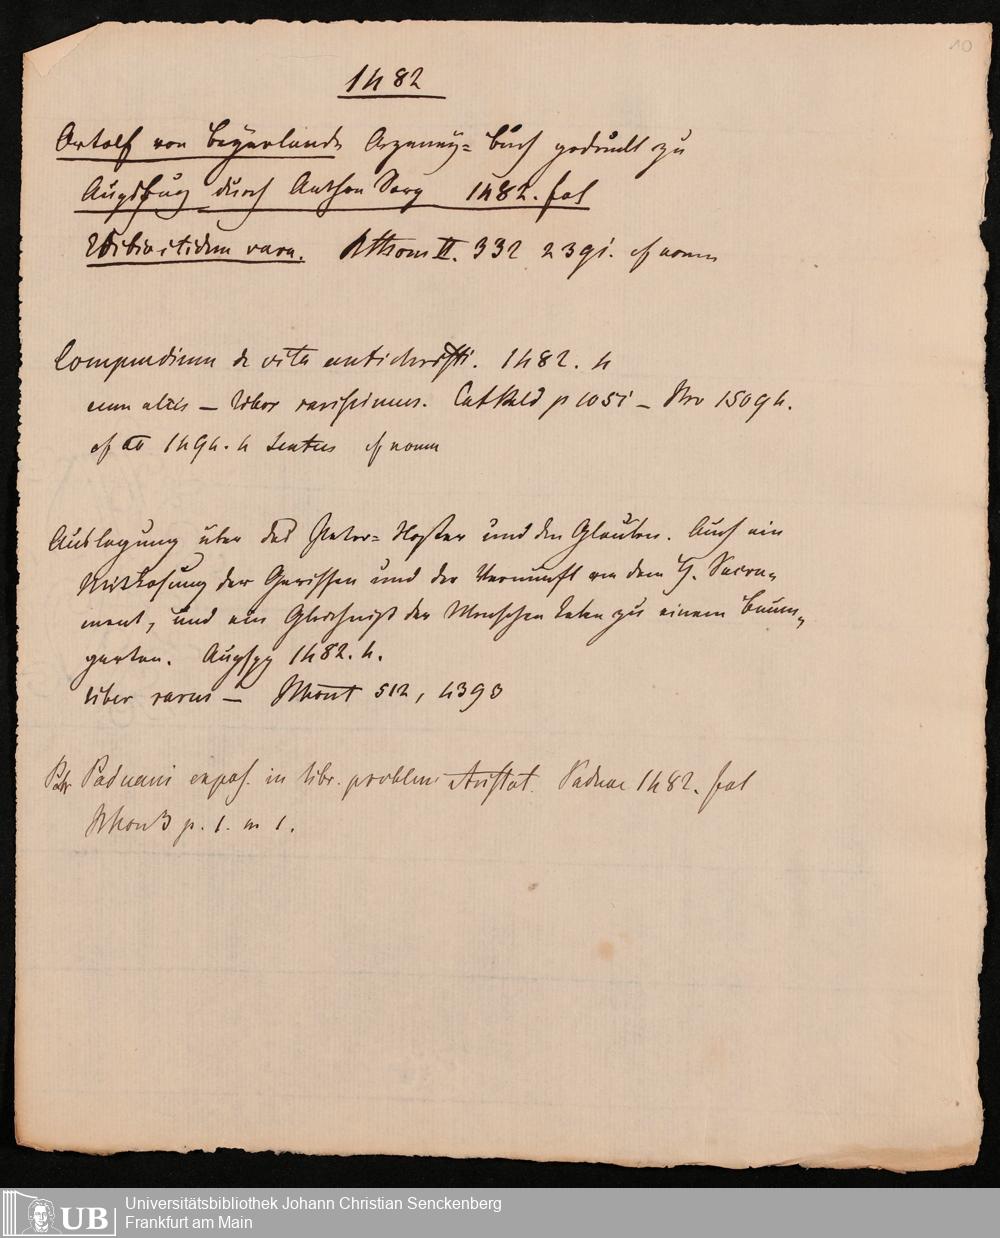 10
1482
Ortolf von Beyerlands Arzeney= Buch gedruckt zu
Augspurg durch Anthon Sorg 1482. fol
Editio itidem rara. II. 332 2391. cf
Compendium de vita antichristi. 1482. 4
cum aliis – liber rarissimus. Cat p 1051 – Nro 15094.
cf 1494. 4 cf
Auslegung über das Pater= Noster und den Glauben. Auch ein
der Gewissen und der Vernunft von dem H. Sacra-
ment, und ein Gleichniß des Menschen Leben zu einem Baum-
garten. Augspg 1482. 4.
liber rarus – 512, 4393
Petr Paduani expos. in libr. problem Aristot. Paduae 1482. fol
p. 1. m 1.
UB
Universitätsbibliothek Johann Christian Senckenberg
Frankfurt am Main